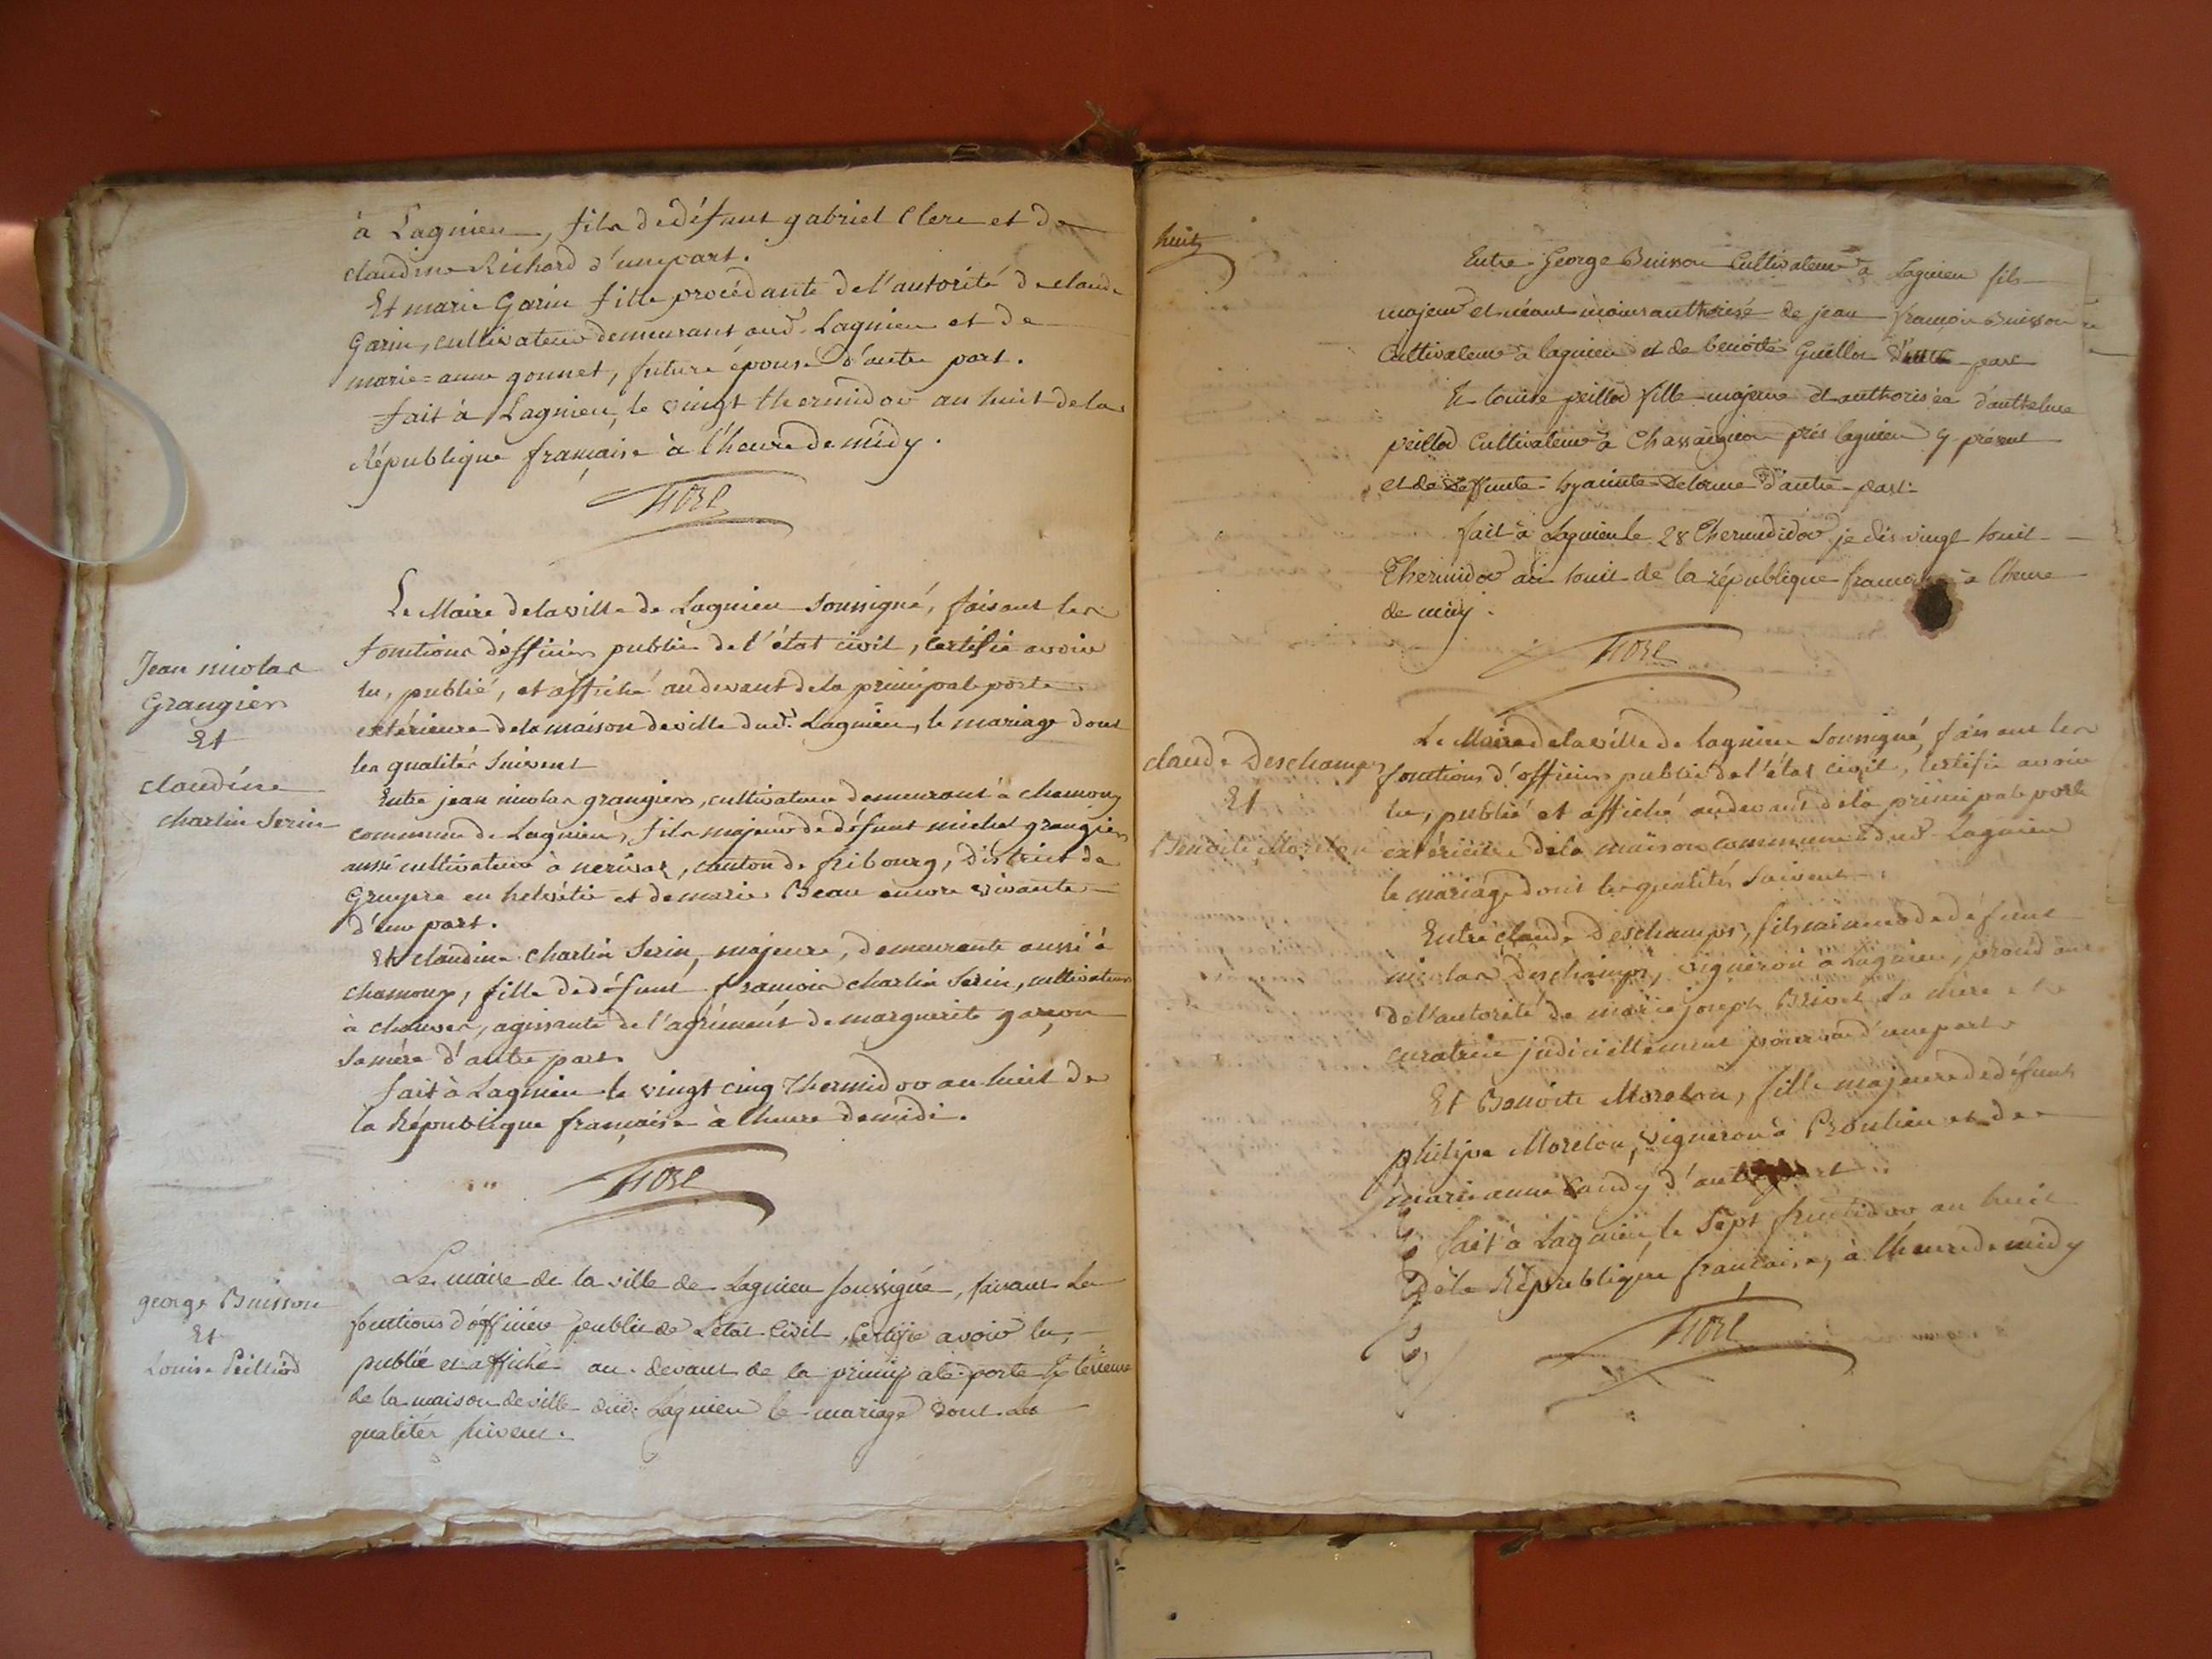 à Lagnieu, fils de défunt gabriel Clerc et de
claudine Richard d'une part.
Et marie Garin fille procédante de l'autorité de claude
Garin, cultivateur demeurant aud. Lagnieu et de
marie=anne gonnet, future épouse d'autre part.
fait à Lagnieu, le vingt thermidor an huit de la
République française à l'heure de midy.
Jean nicolas
Grangiers
Et
claudine
charlin Serin
Le Maire de la ville de Lagnieu soussigné, faisant les
fonctions d'officier public de l'état civil, certifie avoir
lu, publié, et affiché audevant de la principale porte
extérieure de la maison de ville dud. Lagnieu, le mariage dont
les qualités suivent
Entre jean nicolas grangiers, cultivateur demeurant à chamoux
commune de Lagnieu, fils majeur de défunt michel grangiers
aussi cultivateur à , canton de fribourg, district de
Gruyere en helvétie et de marie Beau encore vivante
d'une part.
Et claudine charlin Serin, majeure, demeurante aussi à
chamoux, fille de défunt françois charlin Serin, cultivateur
à , agissante de l'agrément de marguerite garçon
sa mère d'autre part.
fait à Lagnieu le vingt cinq Thermidor an huit de
la République française à l'heure de midi.
george Buisson
Et
Louise Peilliod
Le maire de la ville de Lagnieu soussigné, faisant les
fonctions d'officier public de l'état civil, certifie avoir lu,
publié et affiché au devant de la principale porte Extérieure
de la maison de ville dud. Lagnieu le mariage dont les
qualités suivent.
huit
Entre George Buisson Cultivateur à Lagnieu fils
majeur et néant moins authorisé de jean françois Buisson
Cultivateur à lagnieu et de benoite Guillot d'une part
Et louise peillod fille majeure et authorisée d'anthelme
peillod Cultivateur à près lagnieu y présent
et de deffunte hyacinte Delorme d'autre part.
fait à Lagnieu le 28 Thermidor je dis vingt huit
Thermidor an huit de la république française à l'heure
de midy.
claude Deschamps
Et
Benoite Morelon
Le Maire de la ville de lagnieu soussigné, faisant les
fonctions d'officier public de l'état civil, certifie avoir
lu, publié et affiché audevant de la principale porte
extérieure de la maison commune dud. Lagnieu
le mariage dont les qualités suivent.
Entre claude Deschamps, fils mineur de défunt
nicolas Deschamps, vigneron à Lagnieu,
de l'autorité de marie joseph Brivet sa mère et
curatrice judiciellement pourvue d'une part
Et Benoite Morelon, fille majeure de défunt
philipe Morelon, vigneron à Proulieu et de
marie anne d'autre part.
fait à Lagnieu, le Sept fructidor an huit
de la République française, à l'heure de midy